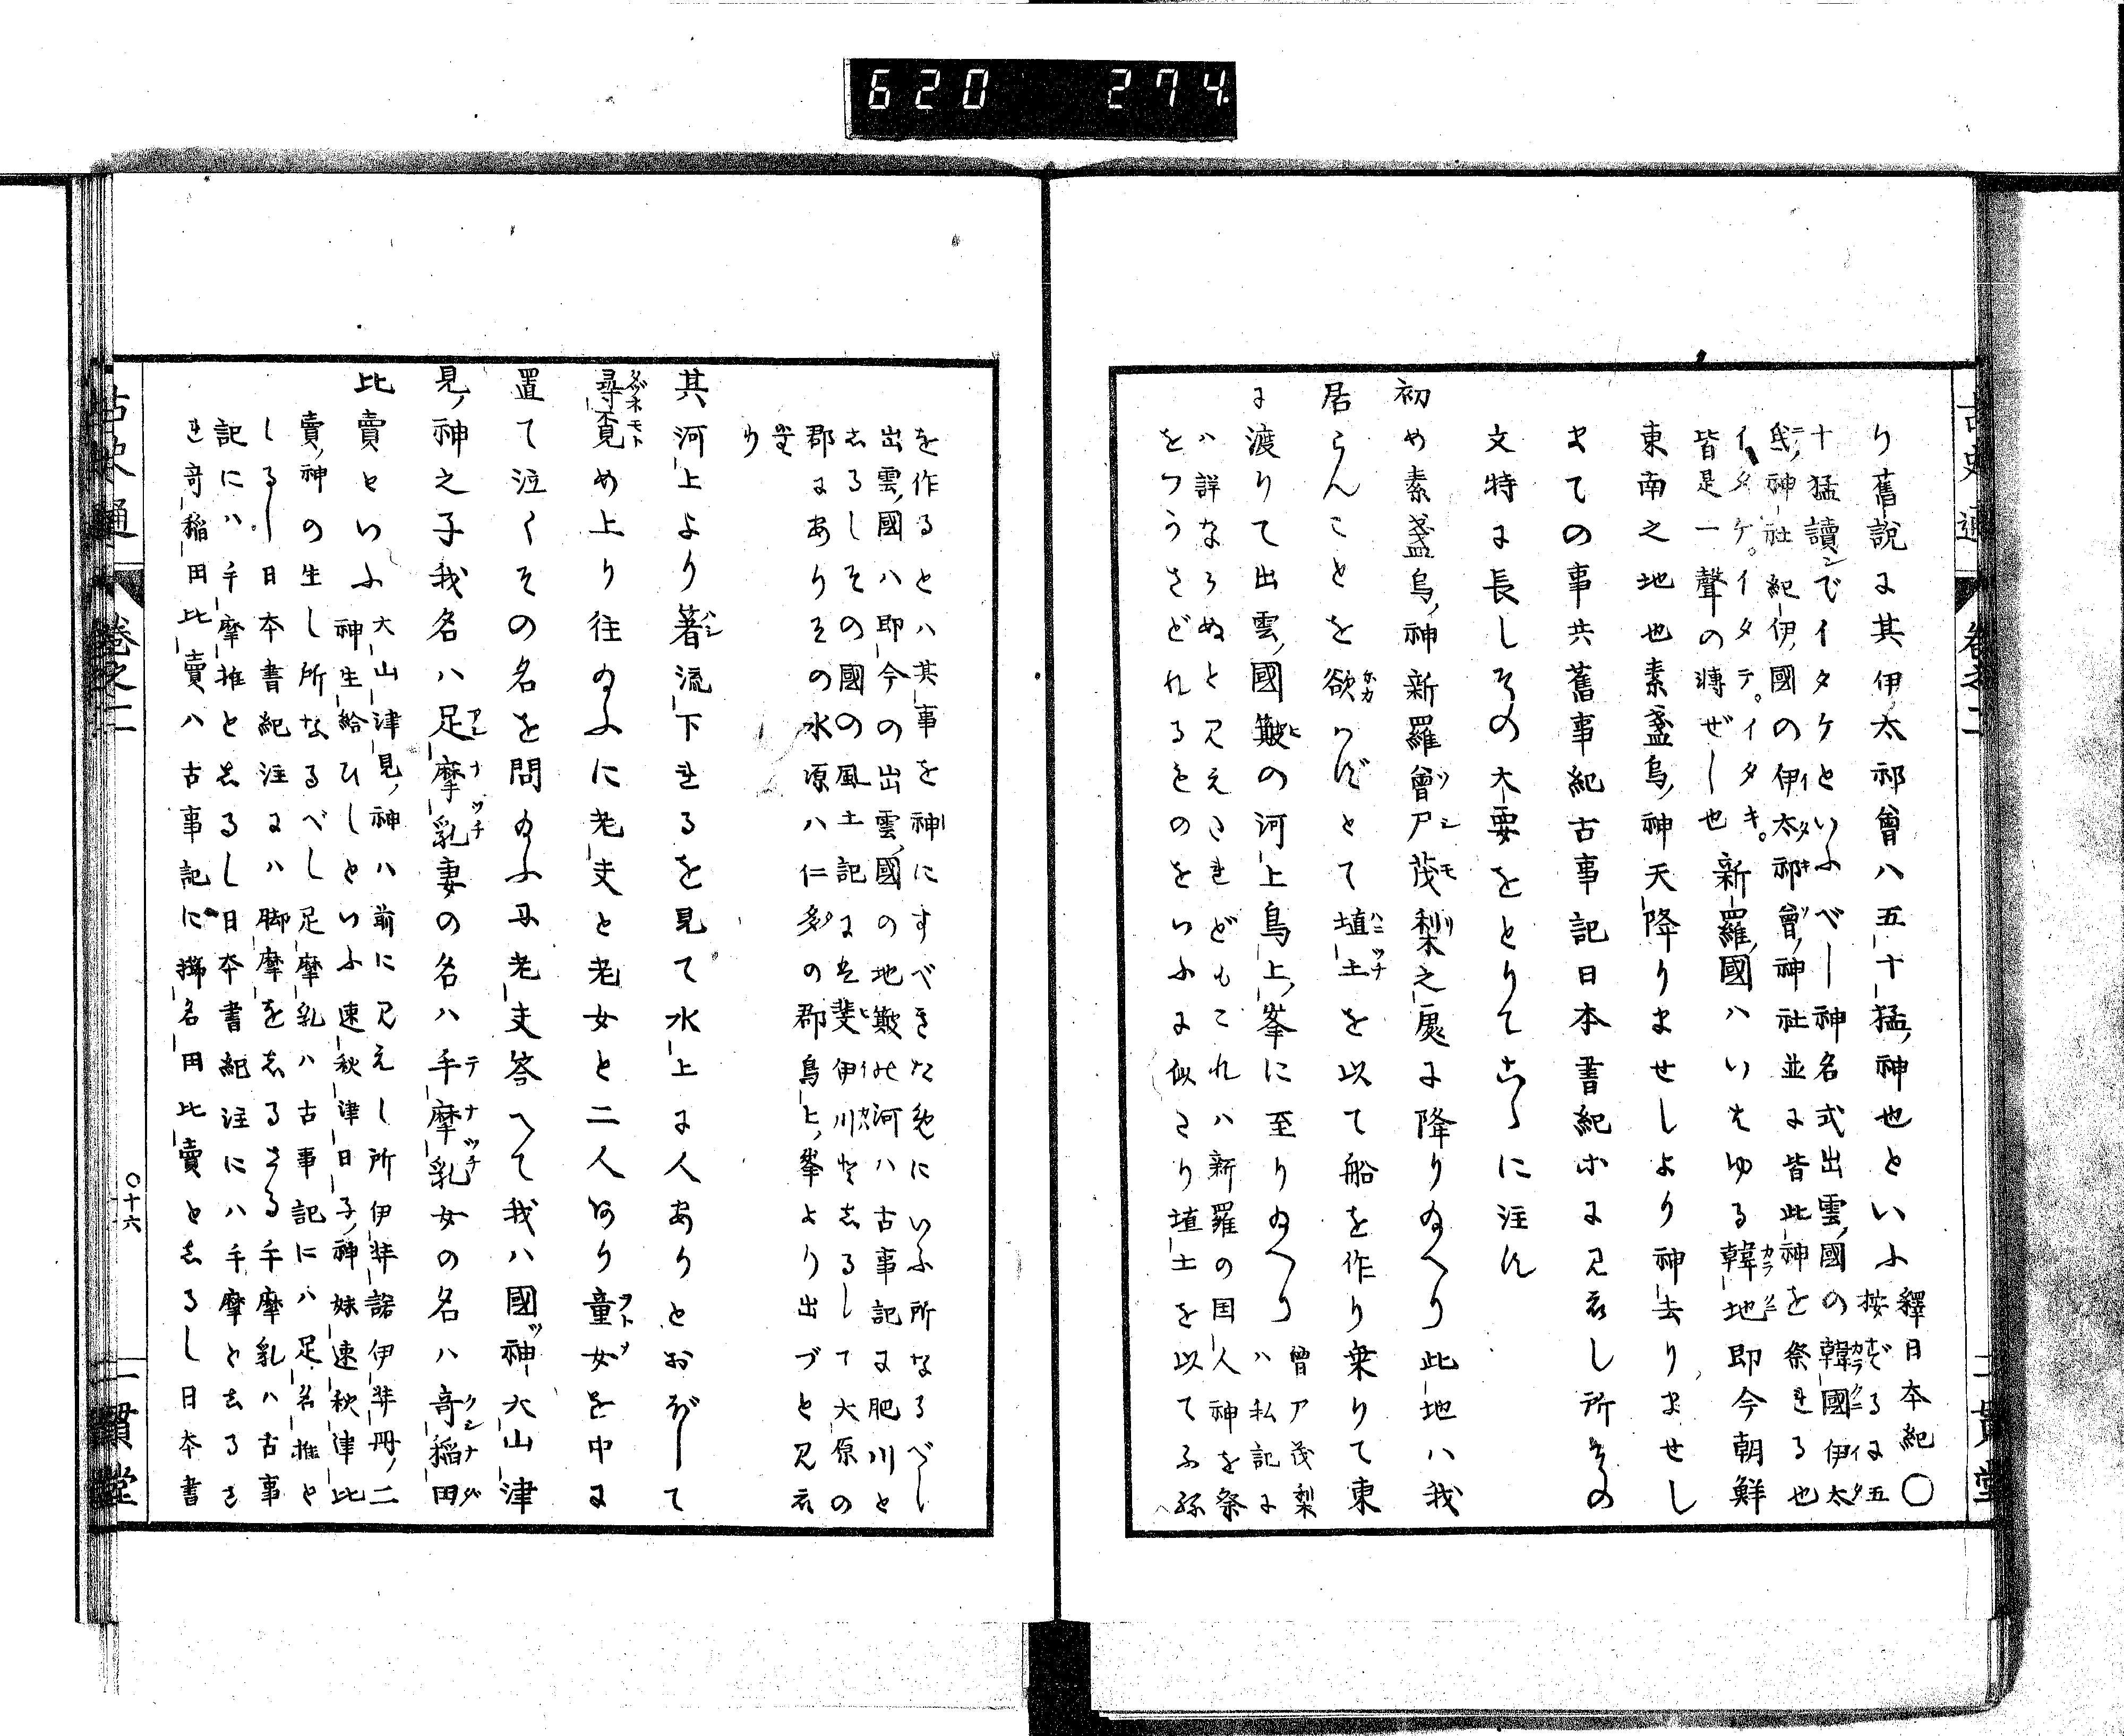 620 274
古史通 卷之二
二貫堂
り舊説に其伊太祁曾ハ五十猛神也といふ 釋日本紀〇
按ずるに五
十猛讀ンでイタケといふべし神名式出雲國の韓國伊太
氐神社紀伊國の伊太祁曾神社並に皆此神を祭れる也
イタケ。イタテ。イタキ。
皆是一聲の轉ぜし也 新羅國ハいはゆる韓地即今朝鮮
東南之地也素盞烏神天降りませしより神去りませし
までの事共舊事紀古事記日本書紀等に見えし所その
文特に長しその大要をとりてこゝに注ん
初め素盞烏神新羅曾尸茂梨之處に降り給へり此地ハ我
居らんことを欲ふまじとて埴土を以て船を作り乗りて東
に渡りて出雲國簸の河上鳥上峯に至り給へり 曾尸茂梨
ハ私記に
ハ詳ならぬと見えたれどもこれハ新羅の国人神を祭
をつうさどれるものをいふに似たり埴土を以てふね
を作るとハ其事を神にすべきために いふ所なるべし
出雲國ハ即今の出雲國の地簸の河ハ古事記に肥川と
しるしその國の風土記には斐伊川としるして大原の
郡にありその水源ハ仁多の郡鳥上峯より出づと見え
たり
其河上より箸流下れるを見て水上に人ありとおぼして
尋覓め上り往給ふに老夫と老女と二人あり童女を中に
置て泣くその名を問給ふに老夫答へて我ハ國ッ神大山津
見神之子我名ハ足摩乳妻の名ハ手摩乳女の名ハ奇稲田
比賣といふ 大山津見神ハ前に見えし所伊弉諾伊弉冊二
神生給ひしといふ速秋津日子神妹速秋津比
賣神の生し所なるべし足摩乳ハ古事記にハ足名推と
しるし日本書紀注にハ脚摩をしるさる手摩乳ハ古事
記にハ手摩推としるし日本書紀注にハ手摩としるさ
れ奇稲田比賣ハ古事記に擳名田比賣としるし日本書
古史通 卷之二
〇十六
二貫堂